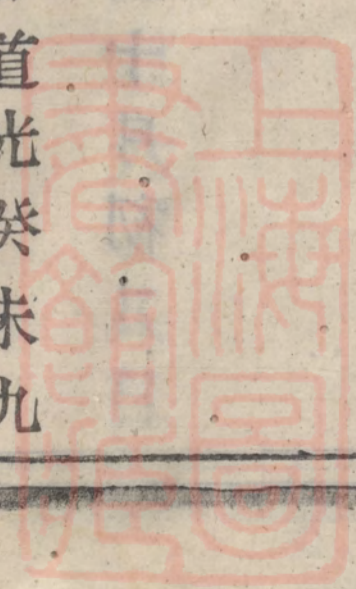 上海圖
書館藏
道光癸未九